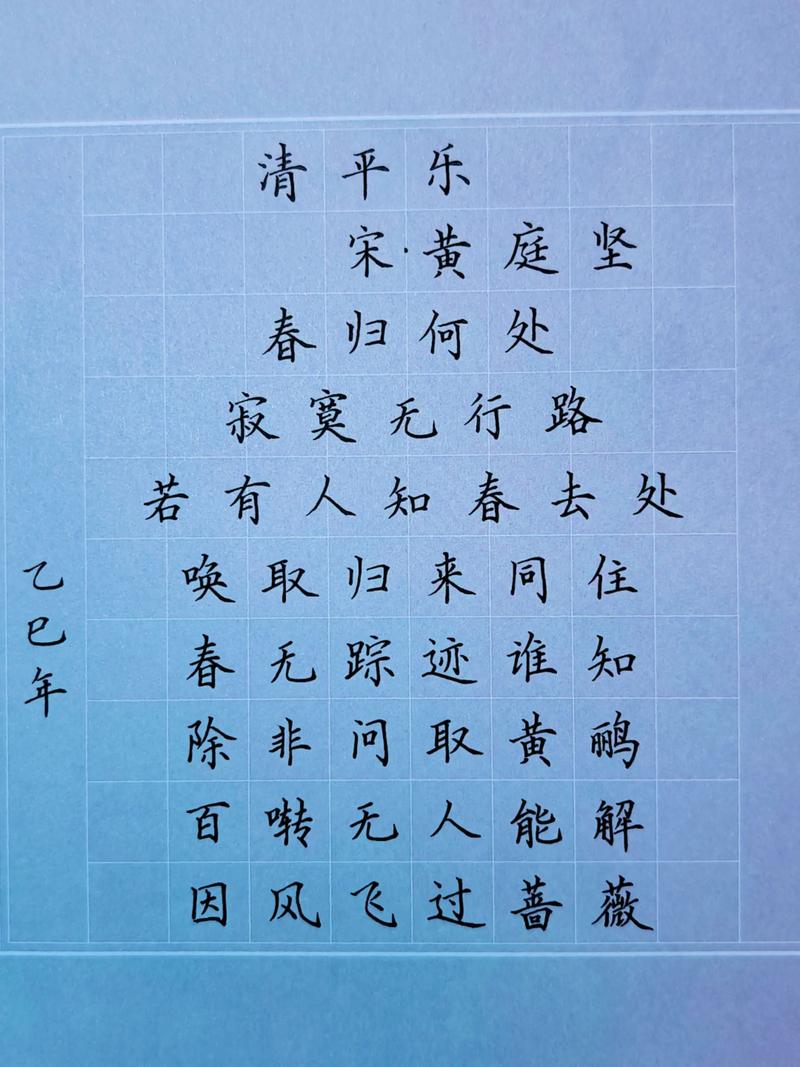 清平乐
宋·黄庭坚
春归何处
寂寞无行路
若有人知春去处
唤取归来同住
春无踪迹谁知
除非问取黄鹂
百啭无人能解
因风飞过蔷薇
乙巳年